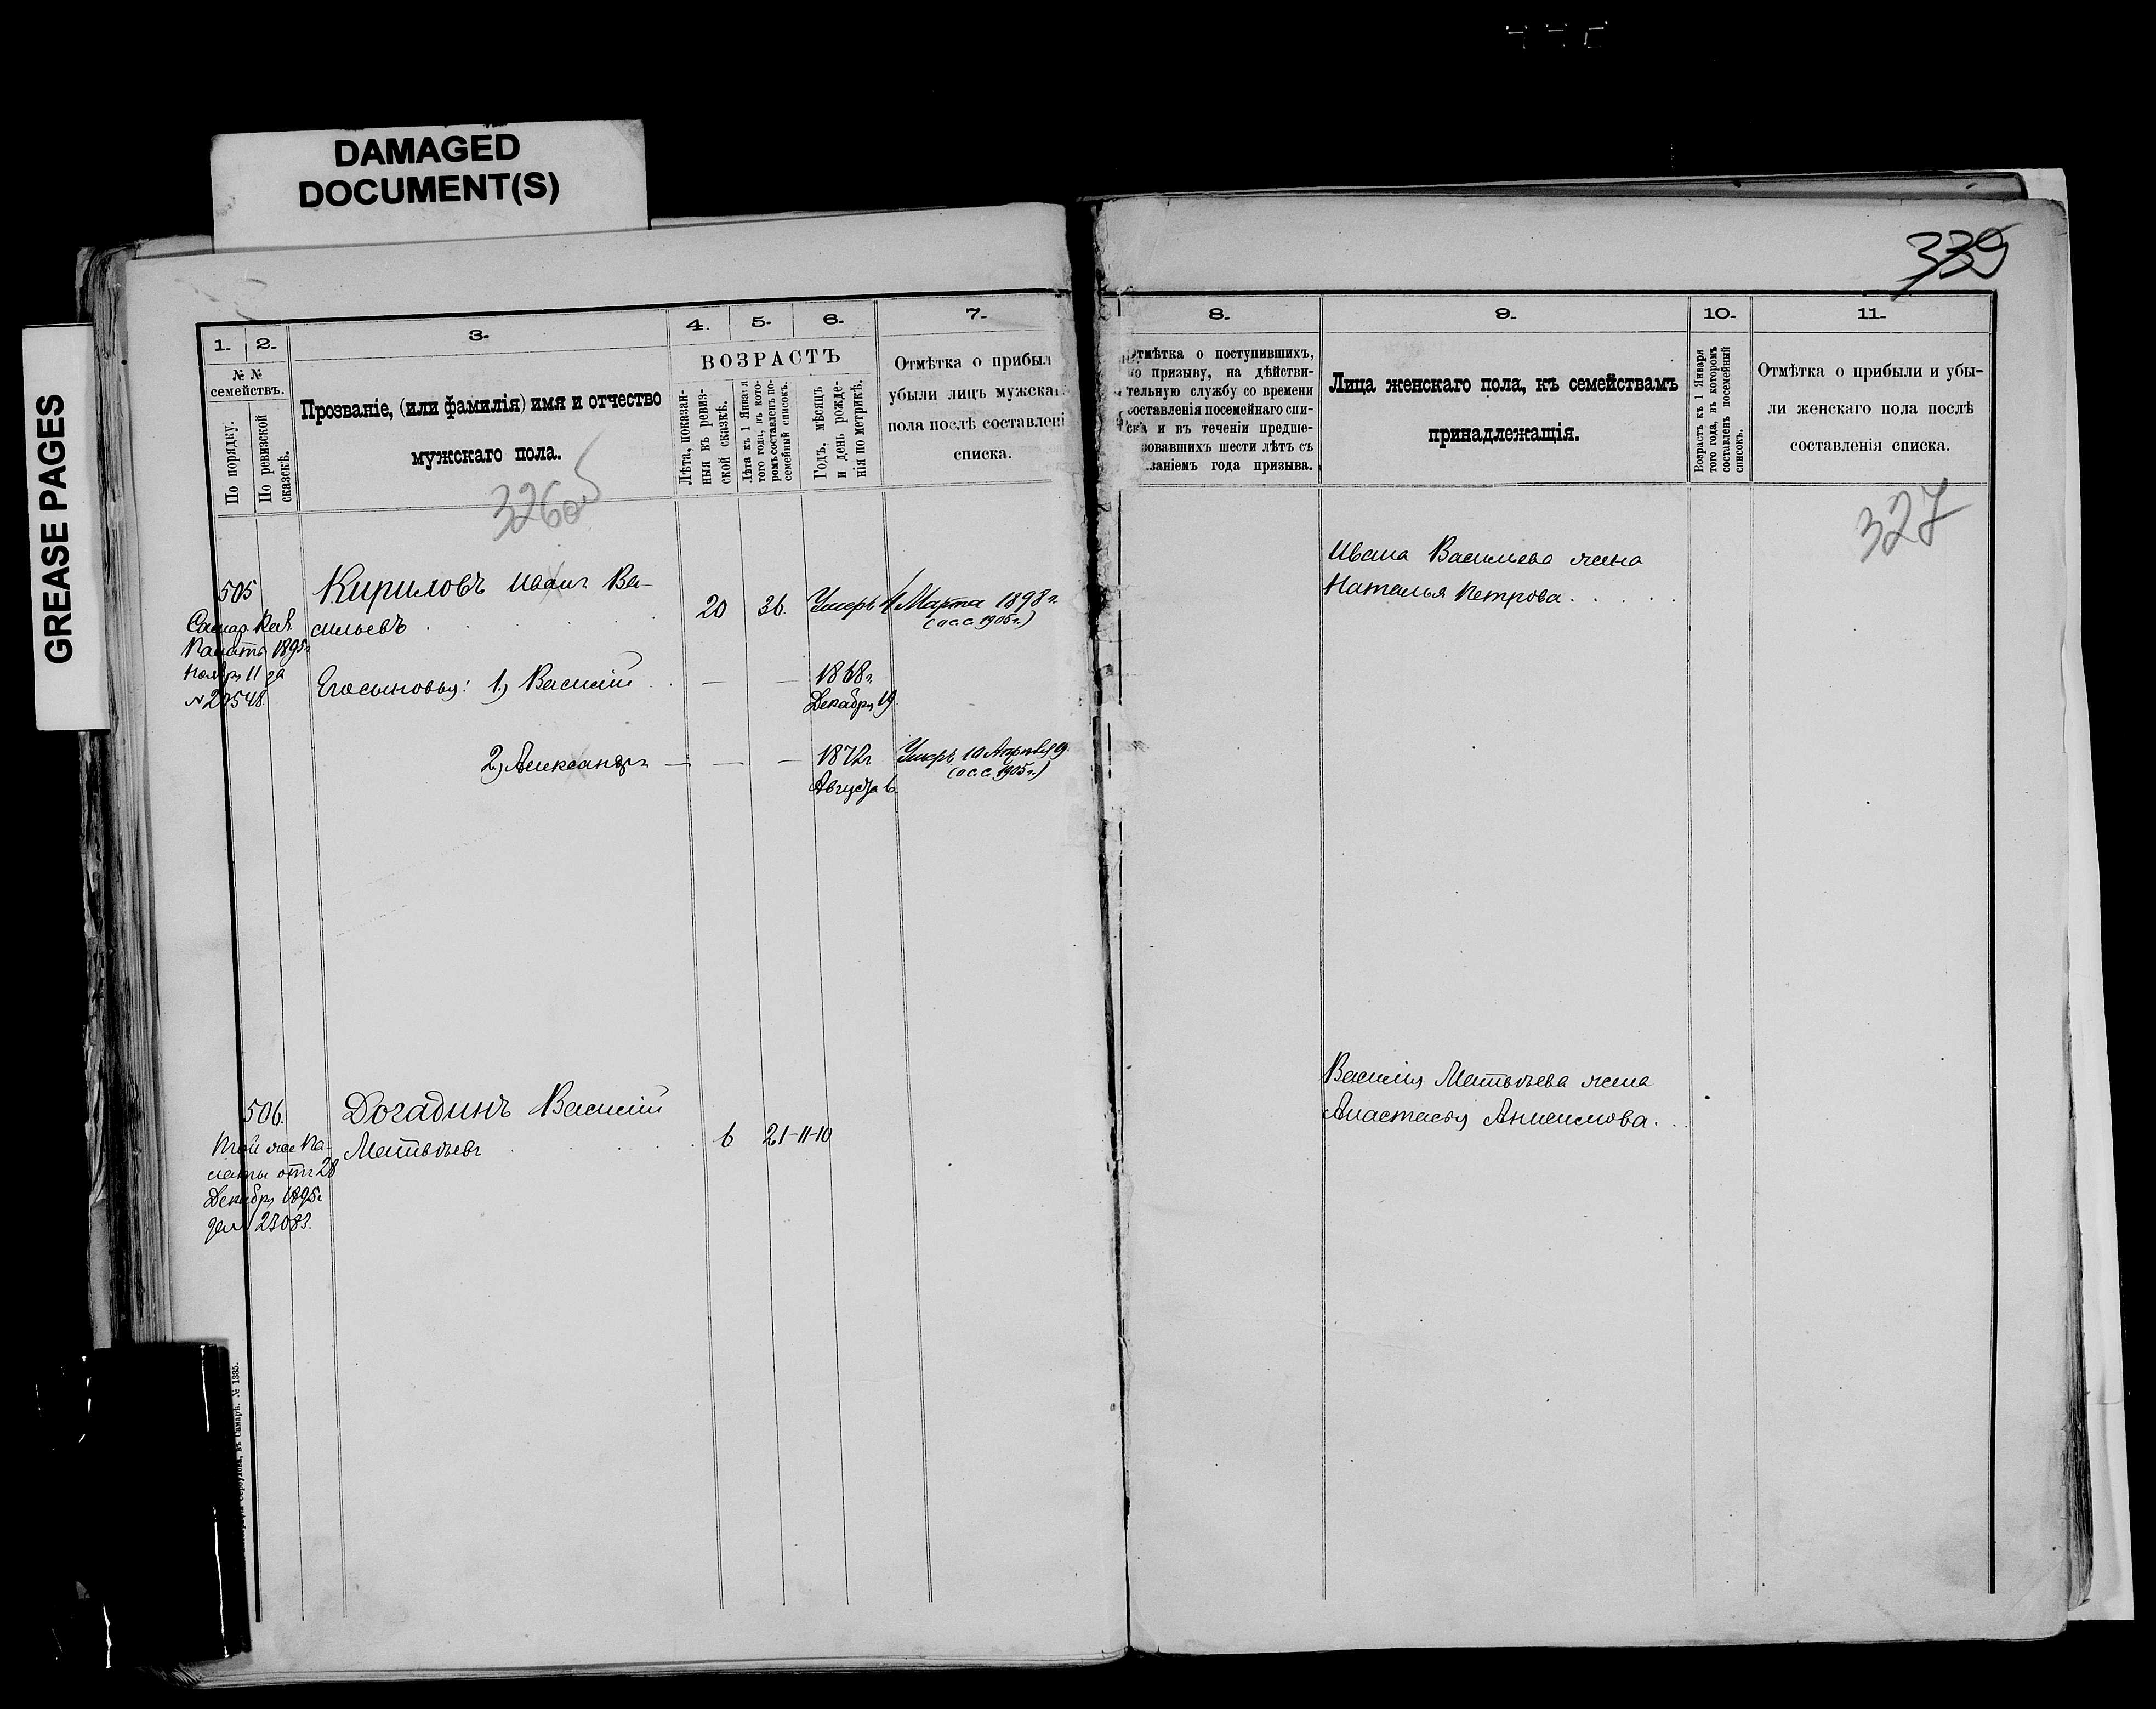 DAMAGED
DOCUMENT(S)
GREASE PAGES
339
1.
2.
3.
4.
5.
6.
7.
№ №
семействъ.
По порядку.
По ревизской
сказскѣ.
Прозваніе, (или фамилія) имя и отчество
мужскаго пола.
ВОЗРАСТЪ
Лѣта, показан-
ныя въ ревиз-
ской сказкѣ.
Лѣта къ 1 Января
того года, въ кото-
ромъ составленъ по-
семейный списокъ.
Годъ, мѣсяцъ
и день рожде-
нія по метрикѣ.
Отмѣтка о прибыл
убыли лицъ мужска
пола послѣ составлені
списка.
326об
505
Самар. Каз.
Палаты 1895г
Ноябр. 11 за
№ 20548
Кириловъ Иванъ Ва-
сильевъ
20
36.
Умеръ 4 Марта 1898 г.
(п с.с. 1905 г.)
Его сыновья: 1, Василій
1868 г.
Декабря 19
2, Александръ
1872 г
Августа 6
(п с.с. 1905 г.)
506.
Той же Па-
латы отъ 28
Декабря 1895 г.
за № 23083.
Догадинъ Василій
Матвѣевъ
6
21-11-10
въ Самарѣ. № 1335.
8.
9.
10.
11.
Отмѣтка о поступившихъ,
по призыву, на дѣйстви-
тельную службу со времени
составленія посемейнаго спи-
ска и въ теченіи предше-
вовавшихъ шести лѣтъ съ
заніемъ года призыва.
Лица женскаго пола, къ семействамъ
принадлежащія.
Возрастъ къ 1 Января
того года, въ которомъ
составленъ посемейный
списокъ.
Отмѣтка о прибыли и убы-
ли женскаго пола послѣ
составленія списка.
327
Ивана Васильева жена
Наталья Петрова
Василія Матвѣева жена
Анастасья Анисимова.